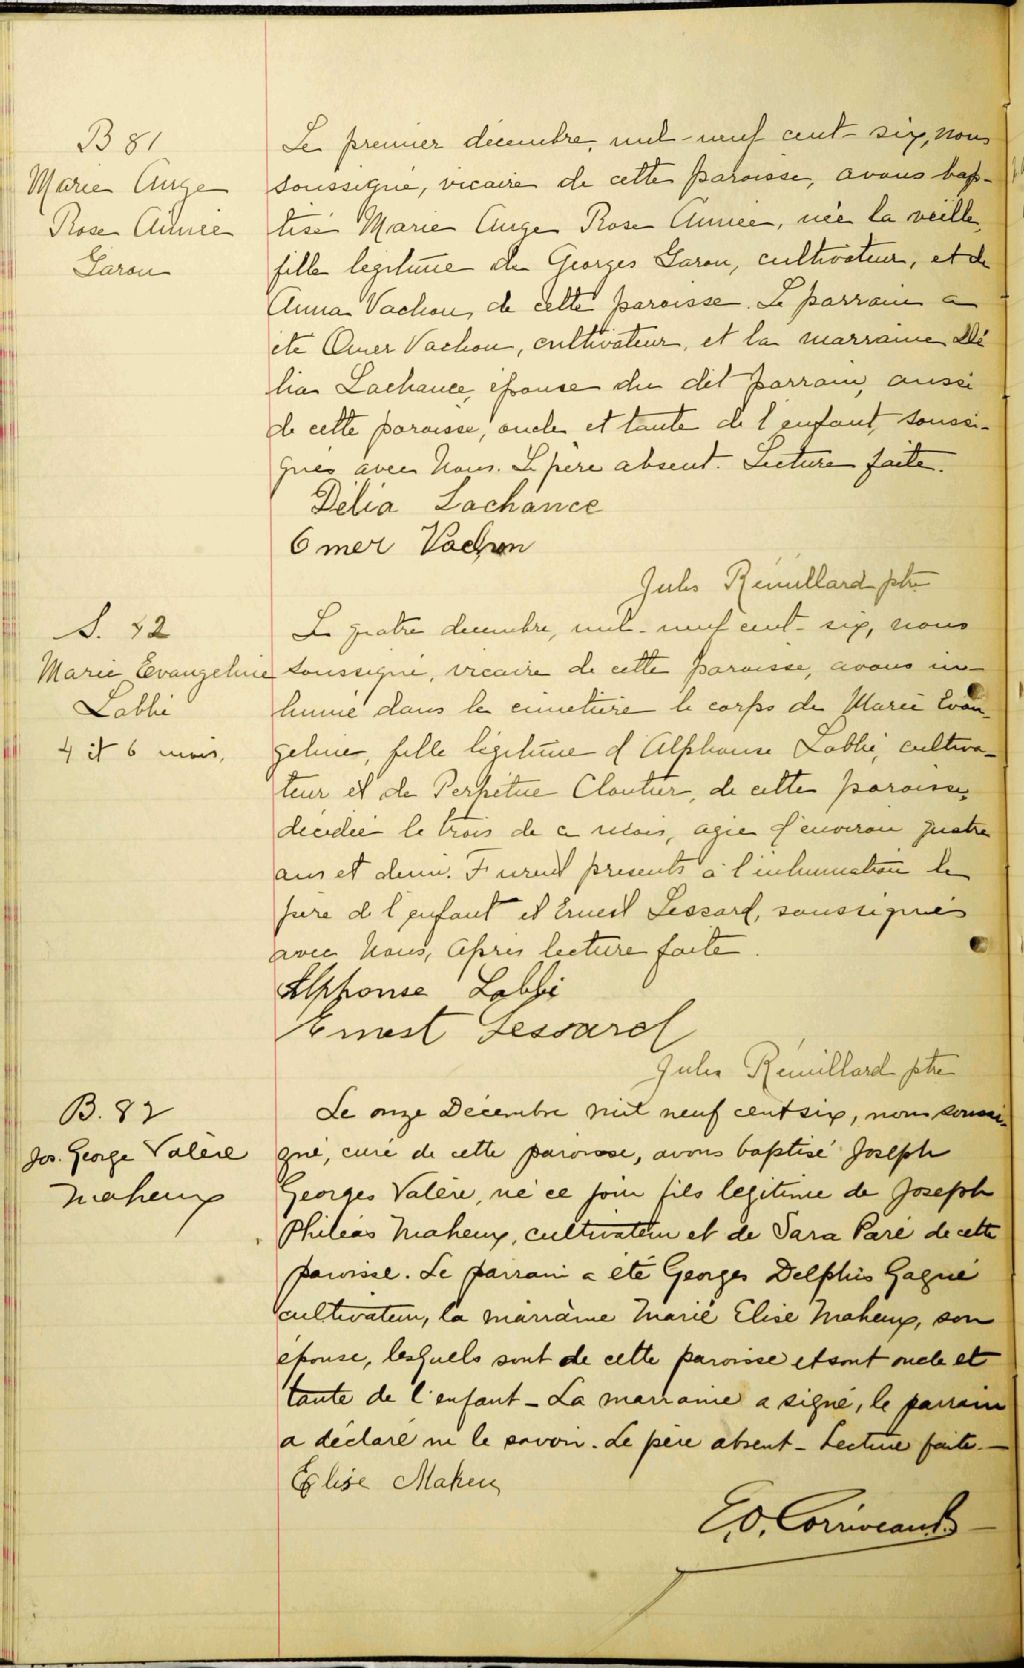 B 81
Marie Ange
Rose Aimée
Garon
Le premier décembre, mil-neuf cent-six, nous
soussigné, vicaire de cette paroisse, avons bap-
tisé Marie Ange Rose Aimée, née la veille,
fille légitime de Georges Garon, cultivateur, et de
Anna Vachon, de cette paroisse. Le parrain a
été Omer Vachon, cultivateur, et la marraine Dé
lia Lachance, épouse du dit parrain, aussi
de cette paroisse, oncle et tante de l'enfant, soussi-
gnés avec Nous. Le père absent. Lecture faite.
Délia Lachance
Omer Vachon
Jules Rémillard ptre
S. 42
Marie Evangeline
Labbé
4 et 6 mois.
Le quatre decembre, mil-neuf cent-six, nous
soussigné, vicaire de cette paroisse, avons in-
humé dans le cimetière le corps de Marie Evan-
geline, fille légitime d'Alphonse Labbé, cultiva-
teur et de Perpétue Cloutier, de cette paroisse,
décédée le trois de ce mois, agée d'environ quatre
ans et demi. Furent présents à l'inhumation le
père de l'enfant et Ernest Lessard, soussignés
avec Nous, après lecture faite.
Alphonse Labbé
Ernest Lessard
Jules Rémillard ptre
B. 82
Jos. George Valère
Maheux
Le onze Décembre mil neuf cent six, nous soussi-
gné, curé de cette paroisse, avons baptisé Joseph
Georges Valère, né ce jour fils légitime de Joseph
Philéas Maheux, cultivateur et de Sara Paré de cette
paroisse. Le parrain a été Georges Delphis Gagné
cultivateur, la marraine Marie Elise Maheux, son
épouse, lesquels sont de cette paroisse et sont oncle et
tante de l'enfant - La marraine a signé, le parrain
a déclaré ne le savoir. Le père absent - Lecture faite. -
Elise Maheu
E.O. Corriveau